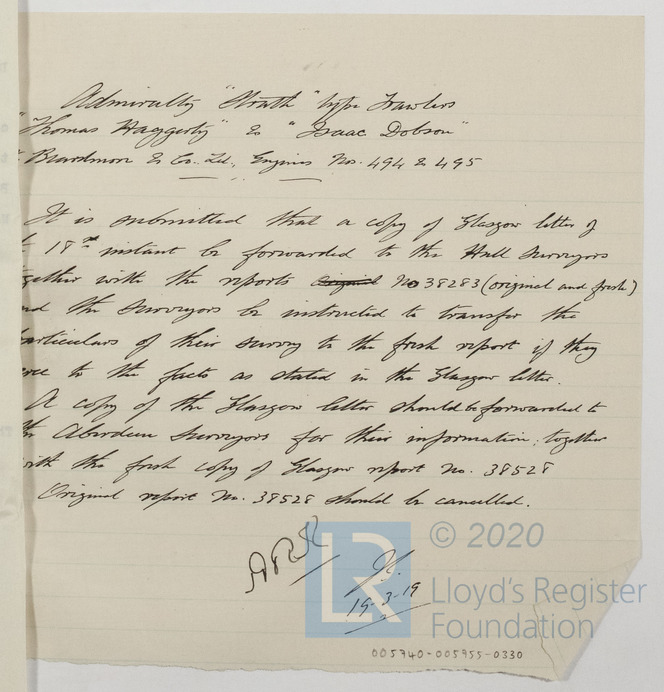 Admiralty "Strath" type Trawlers
"Thomas Haggerty" & "Isaac Dobson"
Beardmore & Co. Ltd., Engines Nos. 494 & 495
It is submitted that a copy of Glasgow letter of
18th instant be forwarded to the Hull Surveyors
gether with the reports Original No 38283 (original and fresh)
nd the Surveyors be instructed to transfer the
particulars of their survey to the fresh report if they
ree to the facts as stated in the Glasgow letter.
A copy of the Glasgow letter should be forwarded to
the Aberdeen Surveyors for their information, together
with the fresh copy of Glasgow report No. 38528
Original report No. 38528 should be cancelled.
19-3-19
LR
© 2020
Lloyd's Register
Foundation
005740-005955-0330